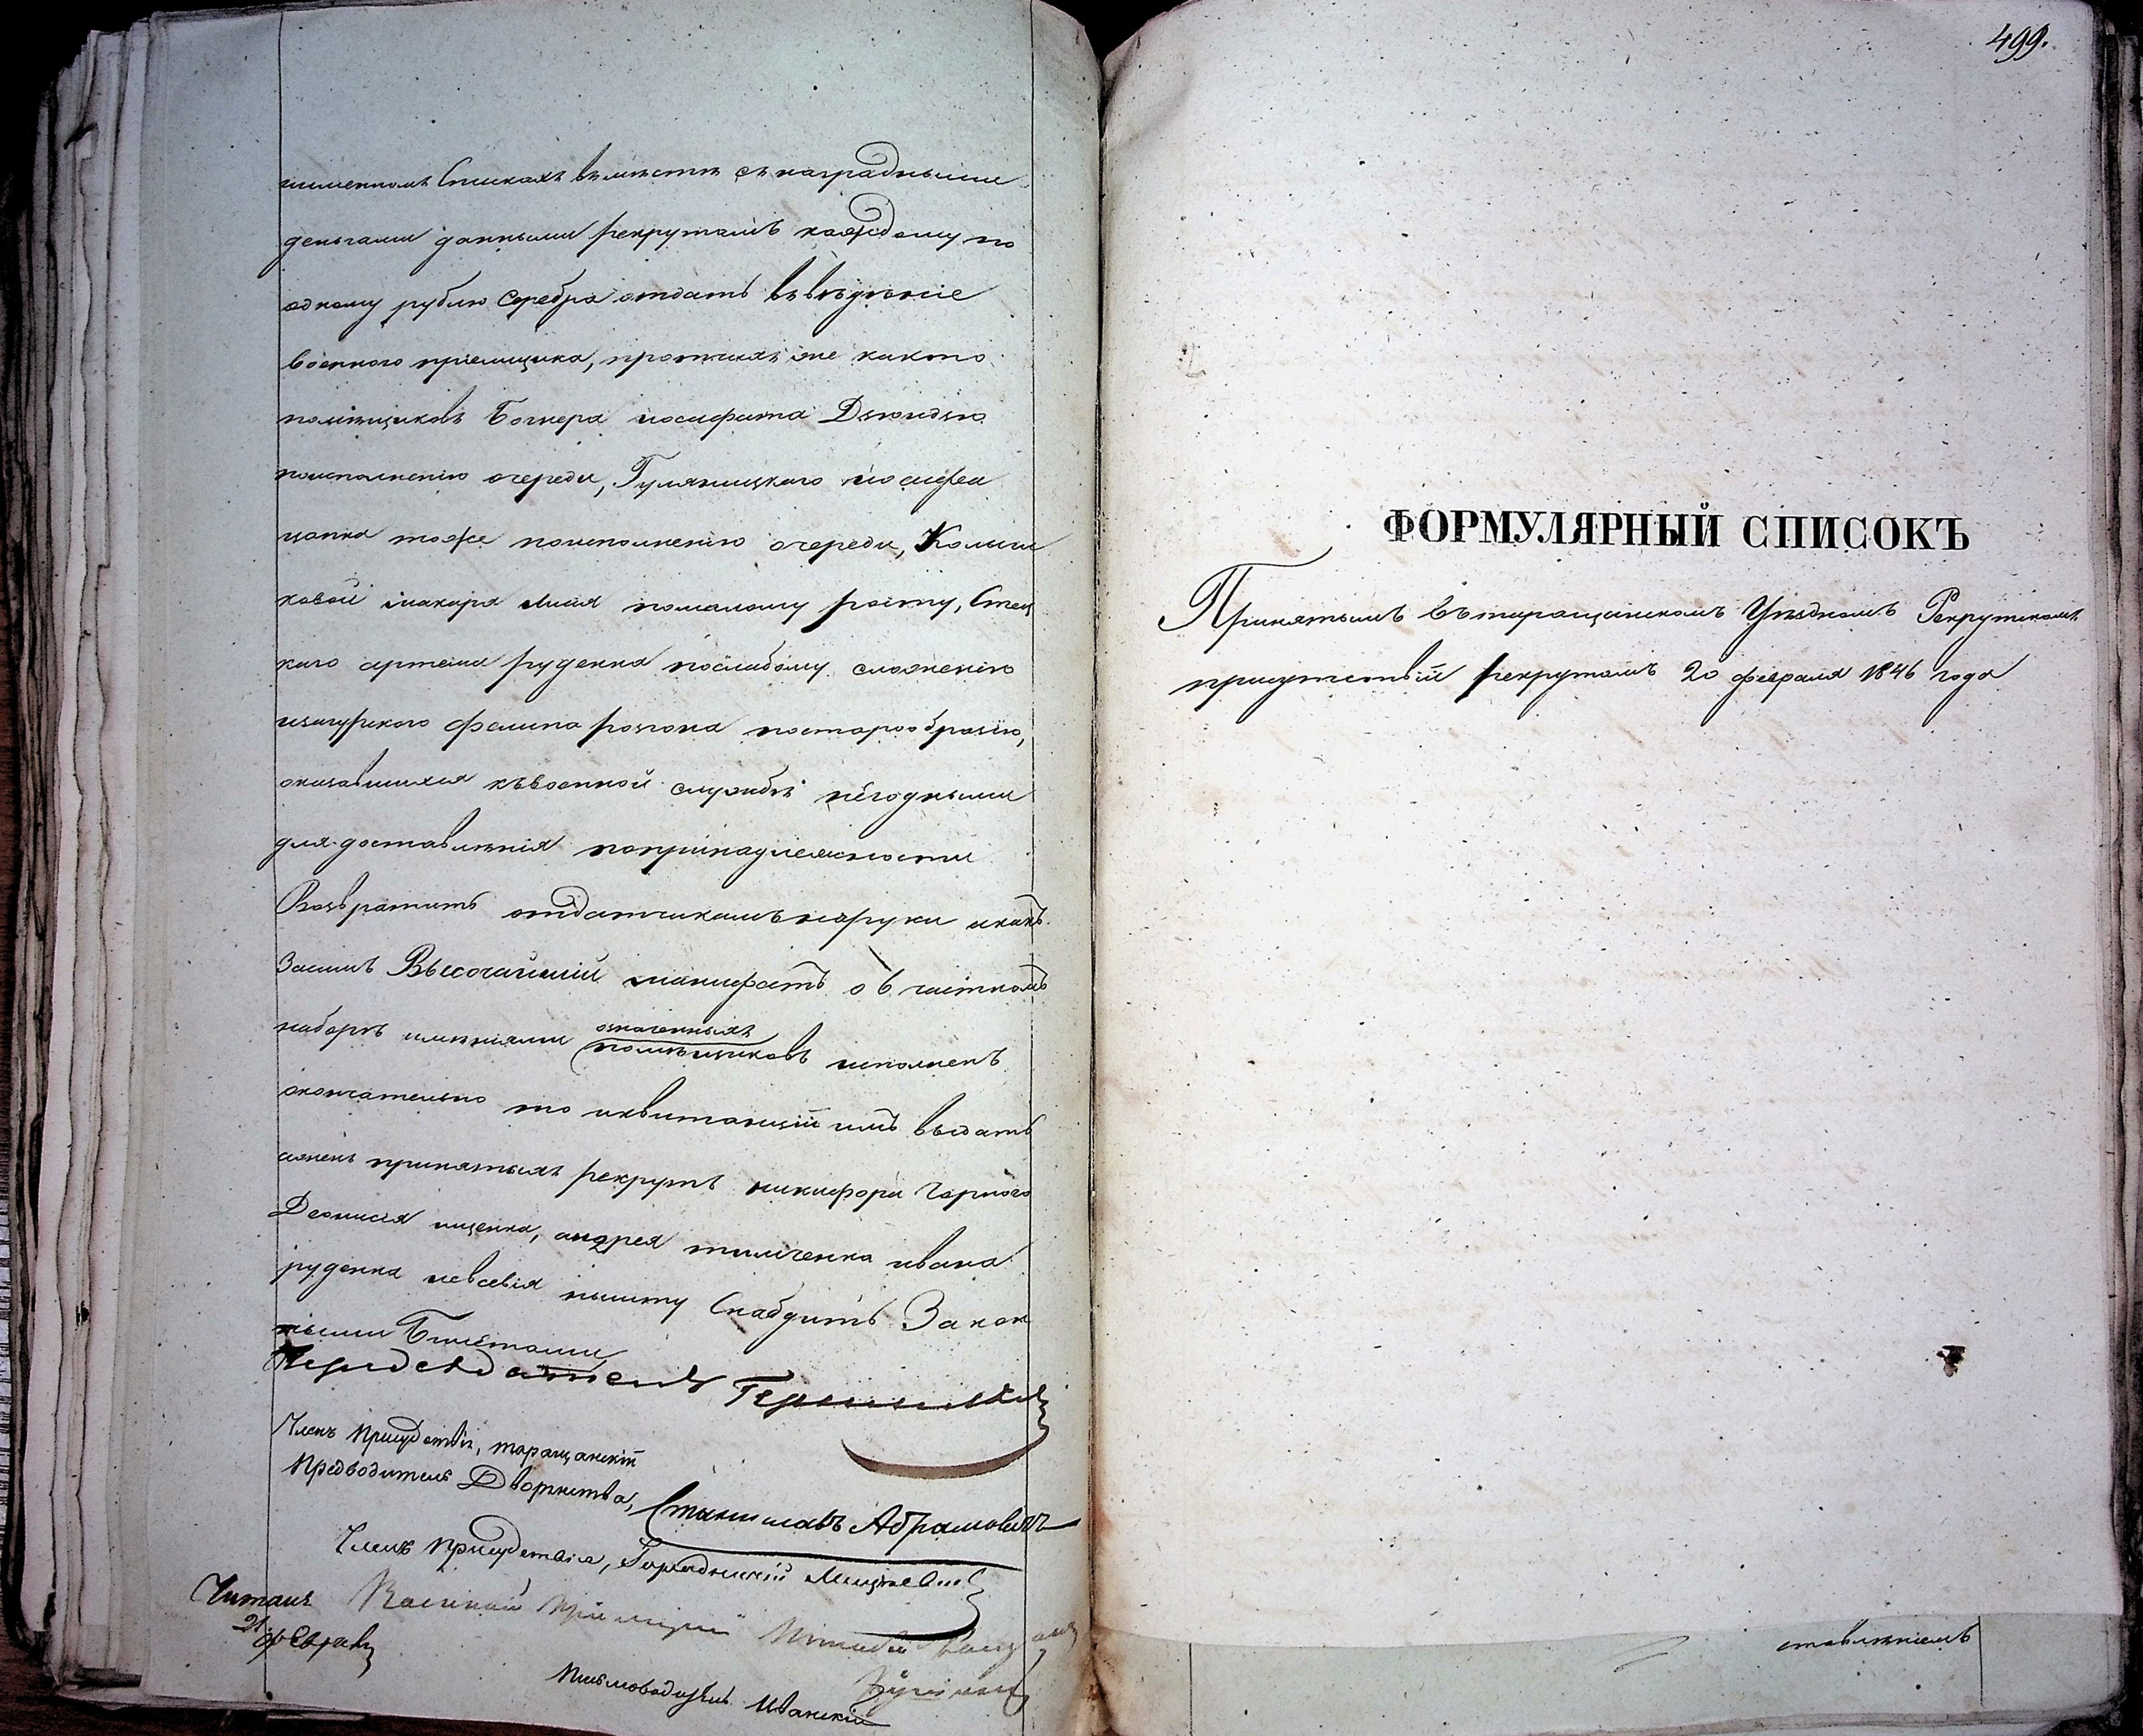 именномъ Спискахъ вместе съ наградными
деньгами данными рекрутамъ каждому по
одному рублю Серебра отдать въ вѣдѣніе
военного пріемщика, протчихъ же както
помѣщиковъ иосафата
поисполнению очереди, Гуляницкаго иосифа
цапка тоже поисполненію очереди, Колыш
ковой макара помалому росту, Стец
каго артема руденка послабому сложенію
розгона постарообразію,
оказавшихся къ военной службѣ негодными
для доставленія попринадлежности
Возвратить отдатчикамъ на руки и какъ
Засимъ Высочайшій манифестъ о 6 частномъ
наборѣ имѣніями означенныхъ
помѣщиковъ исполненъ
окончательно то и квитанціи имъ выдать
а женъ принятыхъ рекрутъ никифора Чорного
Деонисія ищенка, андрея тимченка ивана
руденка иевсевія Снабдить Закон
ными Билетами
Председатель
Членъ Присудствія, таращанскій
Предводитель Дворянства, Станиславъ Абрамовичъ
Членъ Присудствія, Городничій
Читалъ Военный
21 Февраля
Письмоводитель Иванскій
499.
ФОРМУЛЯРНЫЙ СПИСОКЪ
Принятымъ въ таращанскомъ Уѣздномъ Рекрутскомъ
присутствій рекрутамъ 20 февраля 1846 года
ставленіемъ